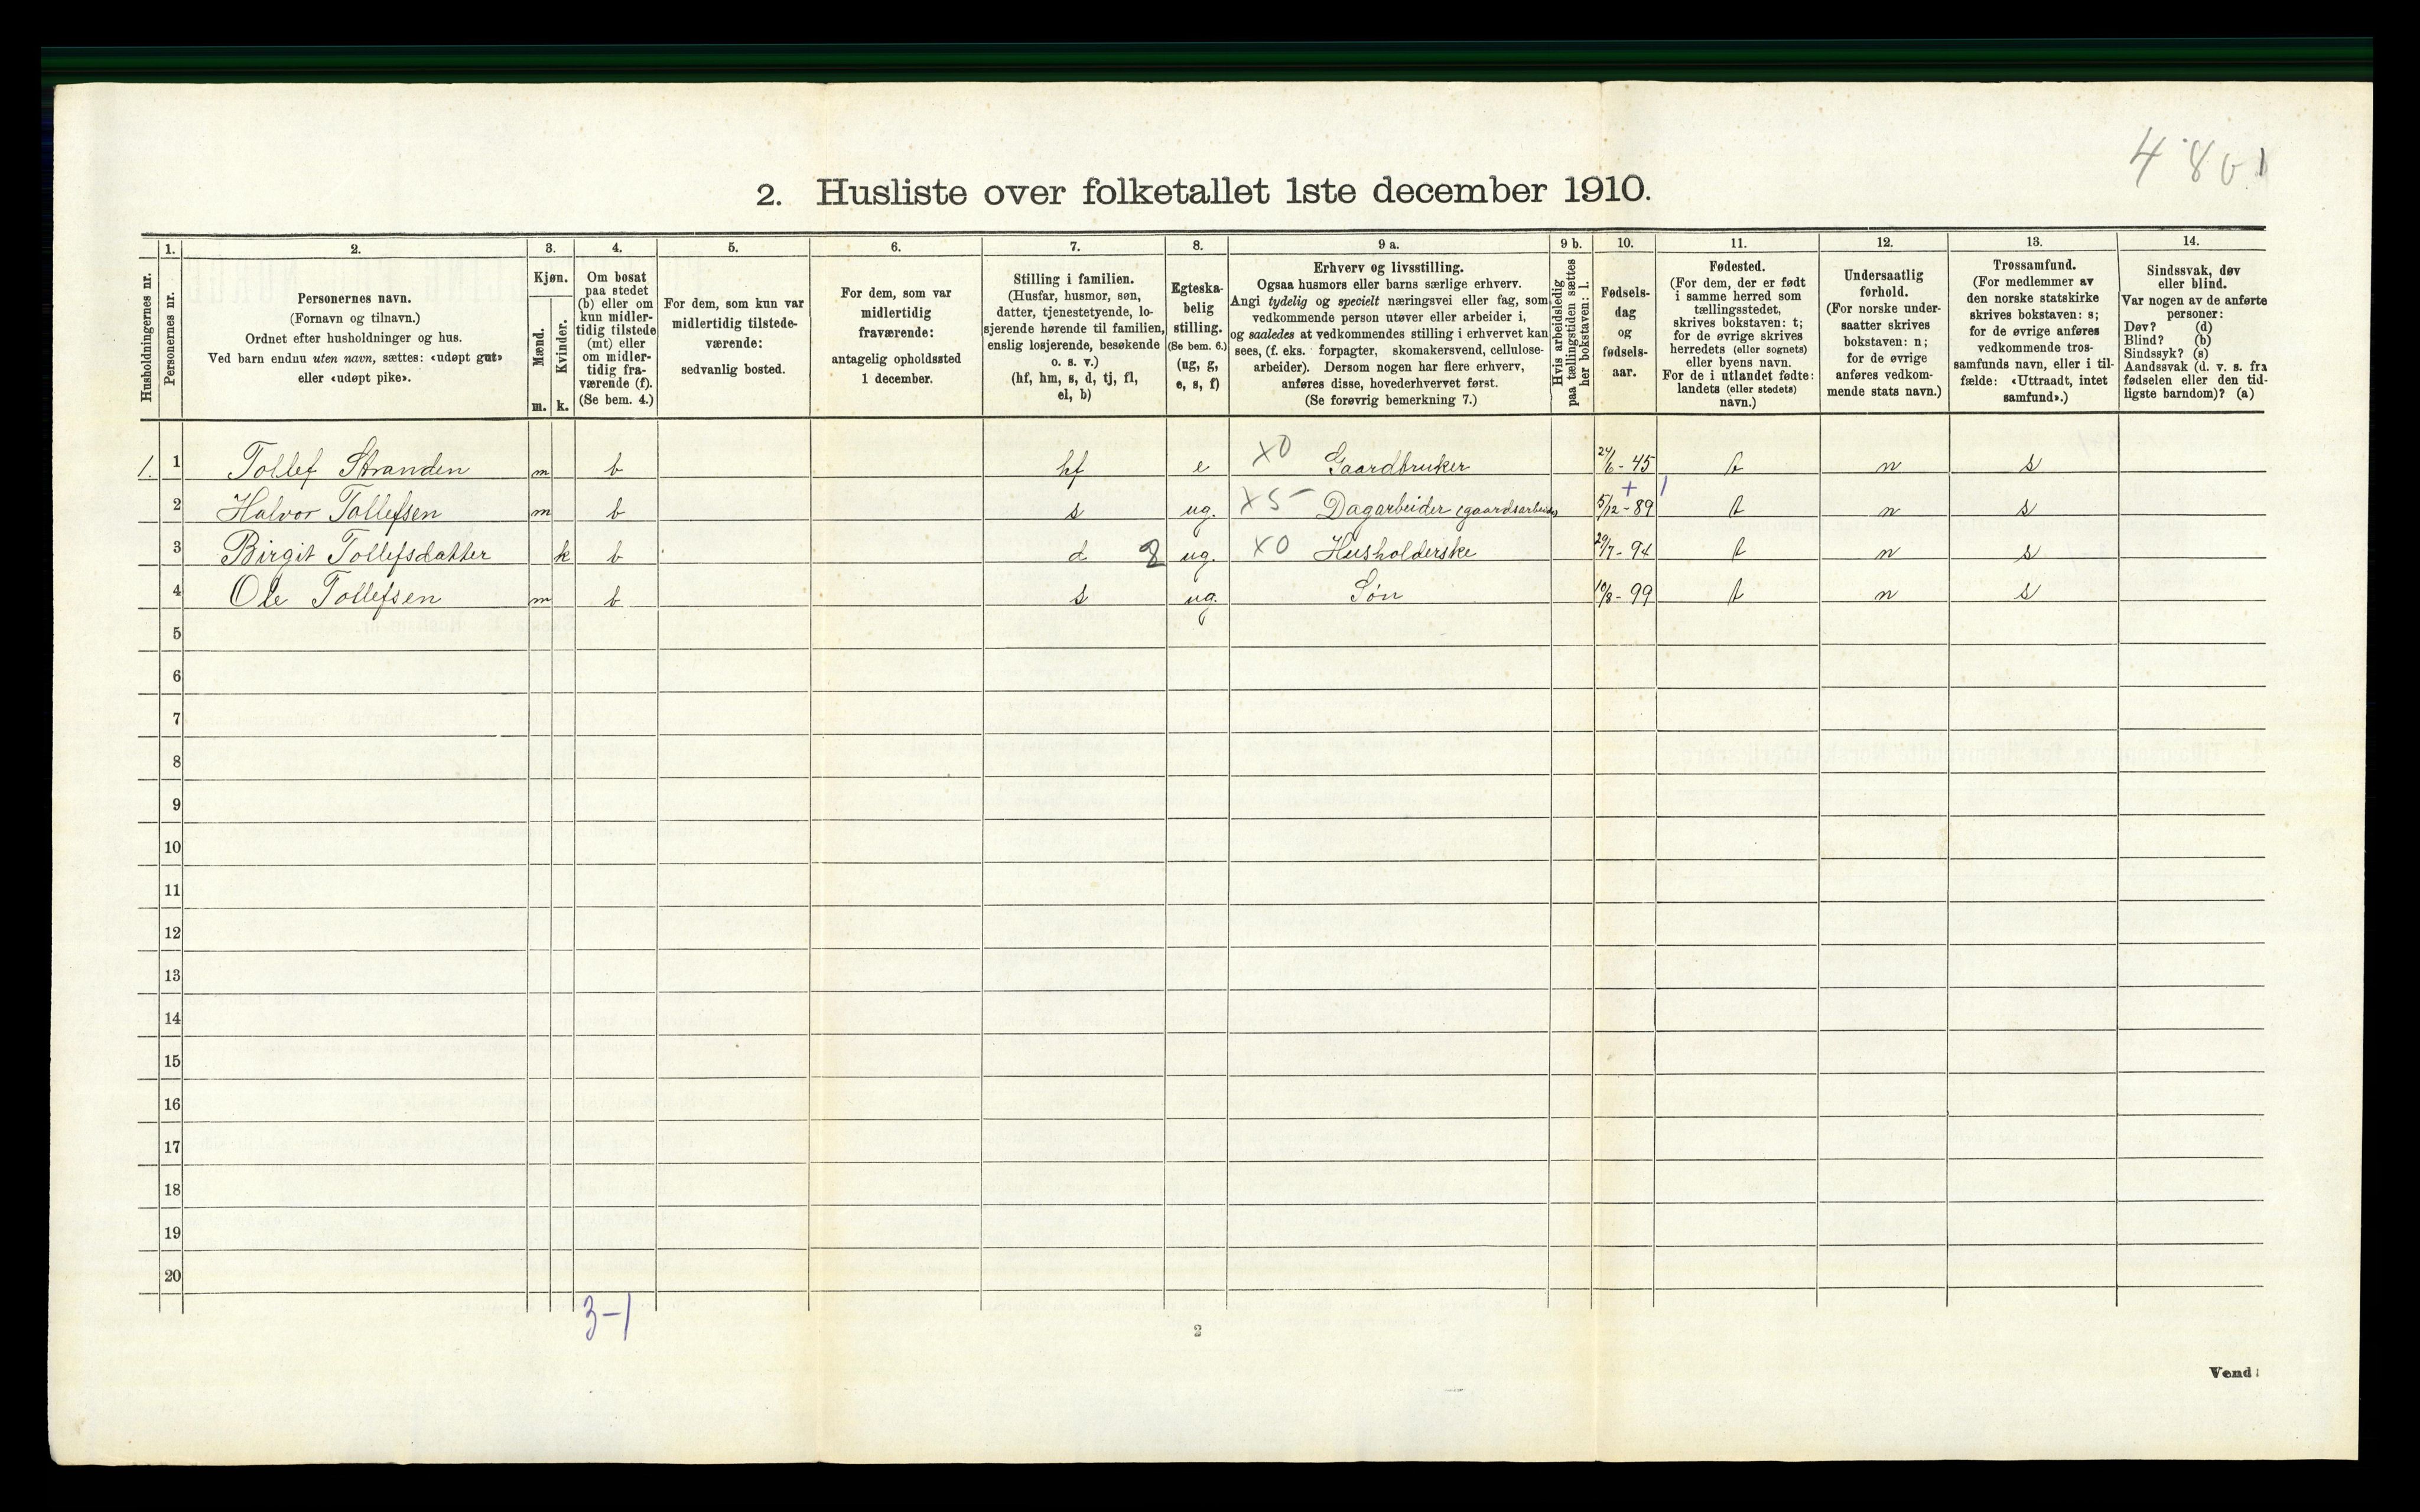 480 1
2. Husliste over folketallet 1ste december 1910.
Husholdningernes nr.
1.
Personernes nr.
2.
Personernes navn.
(Fornavn og tilnavn.)
Ordnet efter husholdninger og hus.
Ved barn endnu uten navn, sættes: «udøpt gut»
eller «udøpt pike».
3.
Kjøn.
Mænd.
Kvinder.
m. k.
4.
Om bosat
paa stedet
(b) eller om
kun midler-
tidig tilstede
(mt) eller
om midler-
tidig fra-
værende (f).
(Se bem. 4.)
5.
For dem, som kun var
midlertidig tilstede-
værende:
sedvanlig bosted.
6.
For dem, som var
midlertidig
fraværende:
antagelig opholdssted
1 december.
7.
Stilling i familien.
(Husfar, husmor, søn,
datter, tjenestetyende, lo-
sjerende hørende til familien,
enslig losjerende, besøkende
o. s. v.)
(hf, hm, s, d, tj, fl,
el, b)
8.
Egteska-
belig
stilling.
(Se bem. 6.)
(ug, g,
e, s, f)
9 a.
Erhverv og livsstilling.
Ogsaa husmors eller barns særlige erhverv.
Angi tydelig og specielt næringsvei eller fag, som
vedkommende person utøver eller arbeider i,
og saaledes at vedkommendes stilling i erhvervet kan
sees, (f. eks. forpagter, skomakersvend, cellulose-
arbeider). Dersom nogen har flere erhverv,
anføres disse, hovederhvervet først.
(Se forøvrig bemerkning 7.)
9 b.
Hvis arbeidsledig
paa tællingstiden sættes
her bokstaven: l.
10.
Fødsels-
dag
og
fødsels-
aar.
11.
Fødested.
(For dem, der er født
i samme herred som
tællingsstedet,
skrives bokstaven: t;
for de øvrige skrives
herredets (eller sognets)
eller byens navn.
For de i utlandet fødte:
landets (eller stedets)
navn.)
12.
Undersaatlig
forhold.
(For norske under-
saatter skrives
bokstaven: n;
for de øvrige
anføres vedkom-
mende stats navn.)
13.
Trossamfund.
(For medlemmer av
den norske statskirke
skrives bokstaven: s;
for de øvrige anføres
vedkommende tros-
samfunds navn, eller i til-
fælde: «Uttraadt, intet
samfund».)
14.
Sindssvak, døv
eller blind.
Var nogen av de anførte
personer:
Døv? (d)
Blind? (b)
Sindssyk? (s)
Aandssvak (d. v. s. fra
fødselen eller den tid-
ligste barndom)? (a)
1. 1 Tollef Stranden m b hf e X0 Gaardbruker 24/6 - 45 t n s
+ 1
2 Halvor Tollefsen m b s ug. X5 - Dagarbeider (gaardsarbeider) 5/12 - 89 t n s
3 Birgit Tollefsdatter k b d 8 ug. X0 Husholderske 29/7 - 94 t n s
4 Ole Tollefsen m b s ug. Søn 10/8 - 99 t n s
5
6
7
8
9
10
11
12
13
14
15
16
17
18
19
20
3-1
2
Vend